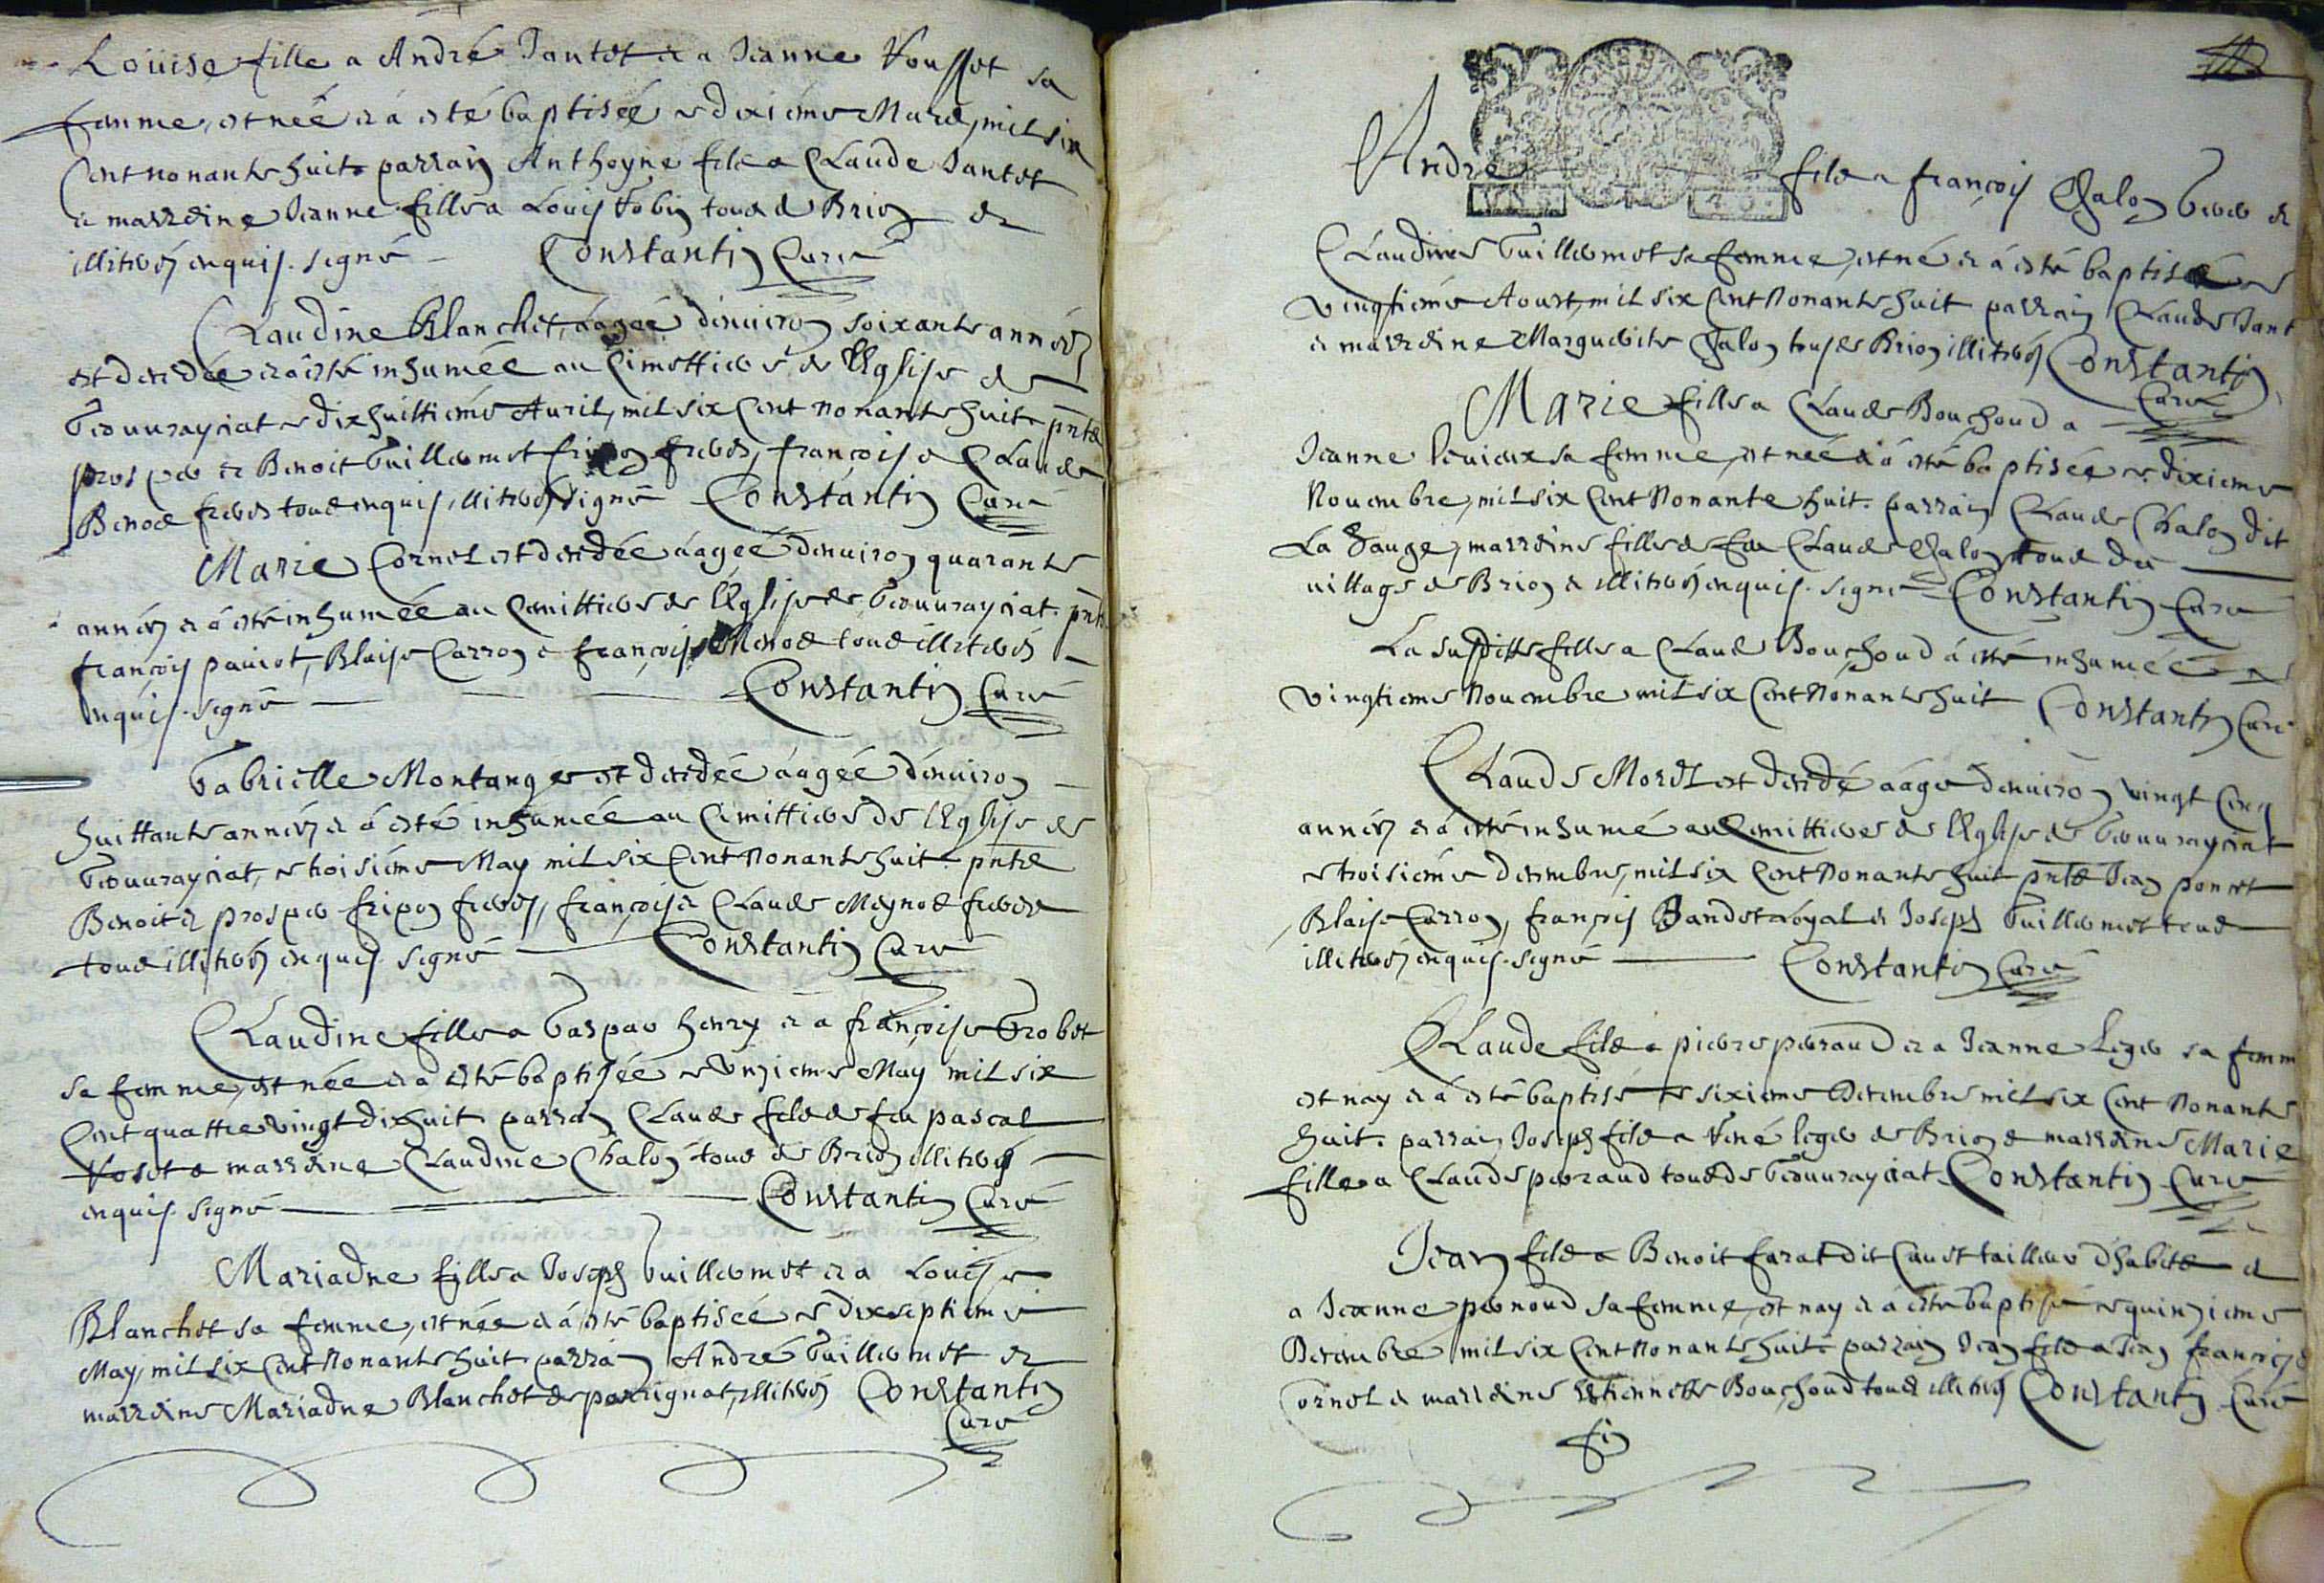 Loüise fille a André Jantet et a Jeanne Rousset sa
femme, est neé et á esté baptiseé ce dixieme Mars, mil six
Cent nonante huit. parrain Anthoyne fils a Claude Jantet
et marreine Jeanne fille a Louis tous de Brion et
illiterés enquis. signé Constantin Curé
Claudine Blanchet, áageé d'enuiron soixante années
est decedée et á esté inhumée au Cimettiere de l'Eglise de
Geouurayciat ce dixhuittiéme Auril, mil six Cent nonante huit pnts
prosper et Benoit Guillermet fripon freres, françois et Claude
freres tous enquis illiterés signé Constantin Curé
Marie Cornet est decedée áageé d'enuiron quarante
années et á esté inhumée au Cemittiere de l'Eglise de Geouurayciat. pnts
françois pauiot, Blaise Carron et françois tous illiterés
enquis. signé Constantin Curé
Gabrielle Montange est decedeé áageé d'enuiron
huittante années et á esté inhumeé au Cemittiere de l'Eglise de
Geouurayciat, ce troisiéme May mil six Cent Nonante huit. pnts
Benoit et prosper fripon freres, françois et Claude Meynod freres
tous illiterés enquis. signé Constantin Curé
Claudine fille a Gaspar henry et a françoise Grobet
sa femme, est née et á esté baptisée ce vnzieme May mil six
Cent quattre vingt dixhuit. parrain Claude fils de feu pascal
et marreine Claudine Chalon tous de Brion illiterés
enquis. signé Constantin Curé
Mariadne fille a Joseph Guillermet et a Louise
Blanchet sa femme, est née et á esté baptiseé ce dixseptieme
May, mil six Cent Nonante huit. parrain André Guillermet et
marreine Mariadne Blanchet de perrignat, illiterés Constantin
Curé
André fils a françois Chalon et
Claudine Guillermet sa femme, est né et á esté baptisé ce
vingtiéme Aoust, mil six Cent Nonante huit parrain Claude Jant
et marreine Marguerite Chalon tous de Brion illiterés Constantin
Curé
Marie fille a Claude Bouchoud a
Jeanne sa femme, est neé et á esté baptisée ce dixieme
Nouembre, mil six Cent Nonante huit. parrain Claude Chalon dit
La marreine fille de feu Claude Chalon tous du
uillage de Brion et illiterés enquis. signé Constantin Curé
La suditte fille a Claude Bouchoud á esté inhumeé ce
vingtieme Nouembre mil six Cent Nonante huit Constantin Curé
Claude Morel est decedé áagé d'enuiron vingt Cinq
années et á esté inhumé au Cemittiere de l'Eglise de Geouurayciat
ce troisiéme decembre, mil six Cent Nonante huit pnts Jean poncet
Blaise Carron, françois et Joseph Guillermet tous
illiterés enquis. signé Constantin Curé
Claude fils a pierre peraud et a Jeanne Leger sa femm
est nay et á esté baptisé ce sixieme Decembre mil six Cent Nonante
huit. parrain Joseph fils a René leger de Brion et marreine Marie
fille a Claude peraud tous de Geouurayciat Constantin Curé
Jean fils a Benoit farat dit tailleur d'habits et
a Jeanne pernoud sa femme, est nay et á esté baptisé ce quinzieme
Decembre mil six Cent Nonante huit. parrain Jean fils a Jean françois
Cornet et marreine Estiennette Bouchoud tous illiterés Constantin Curé
fin